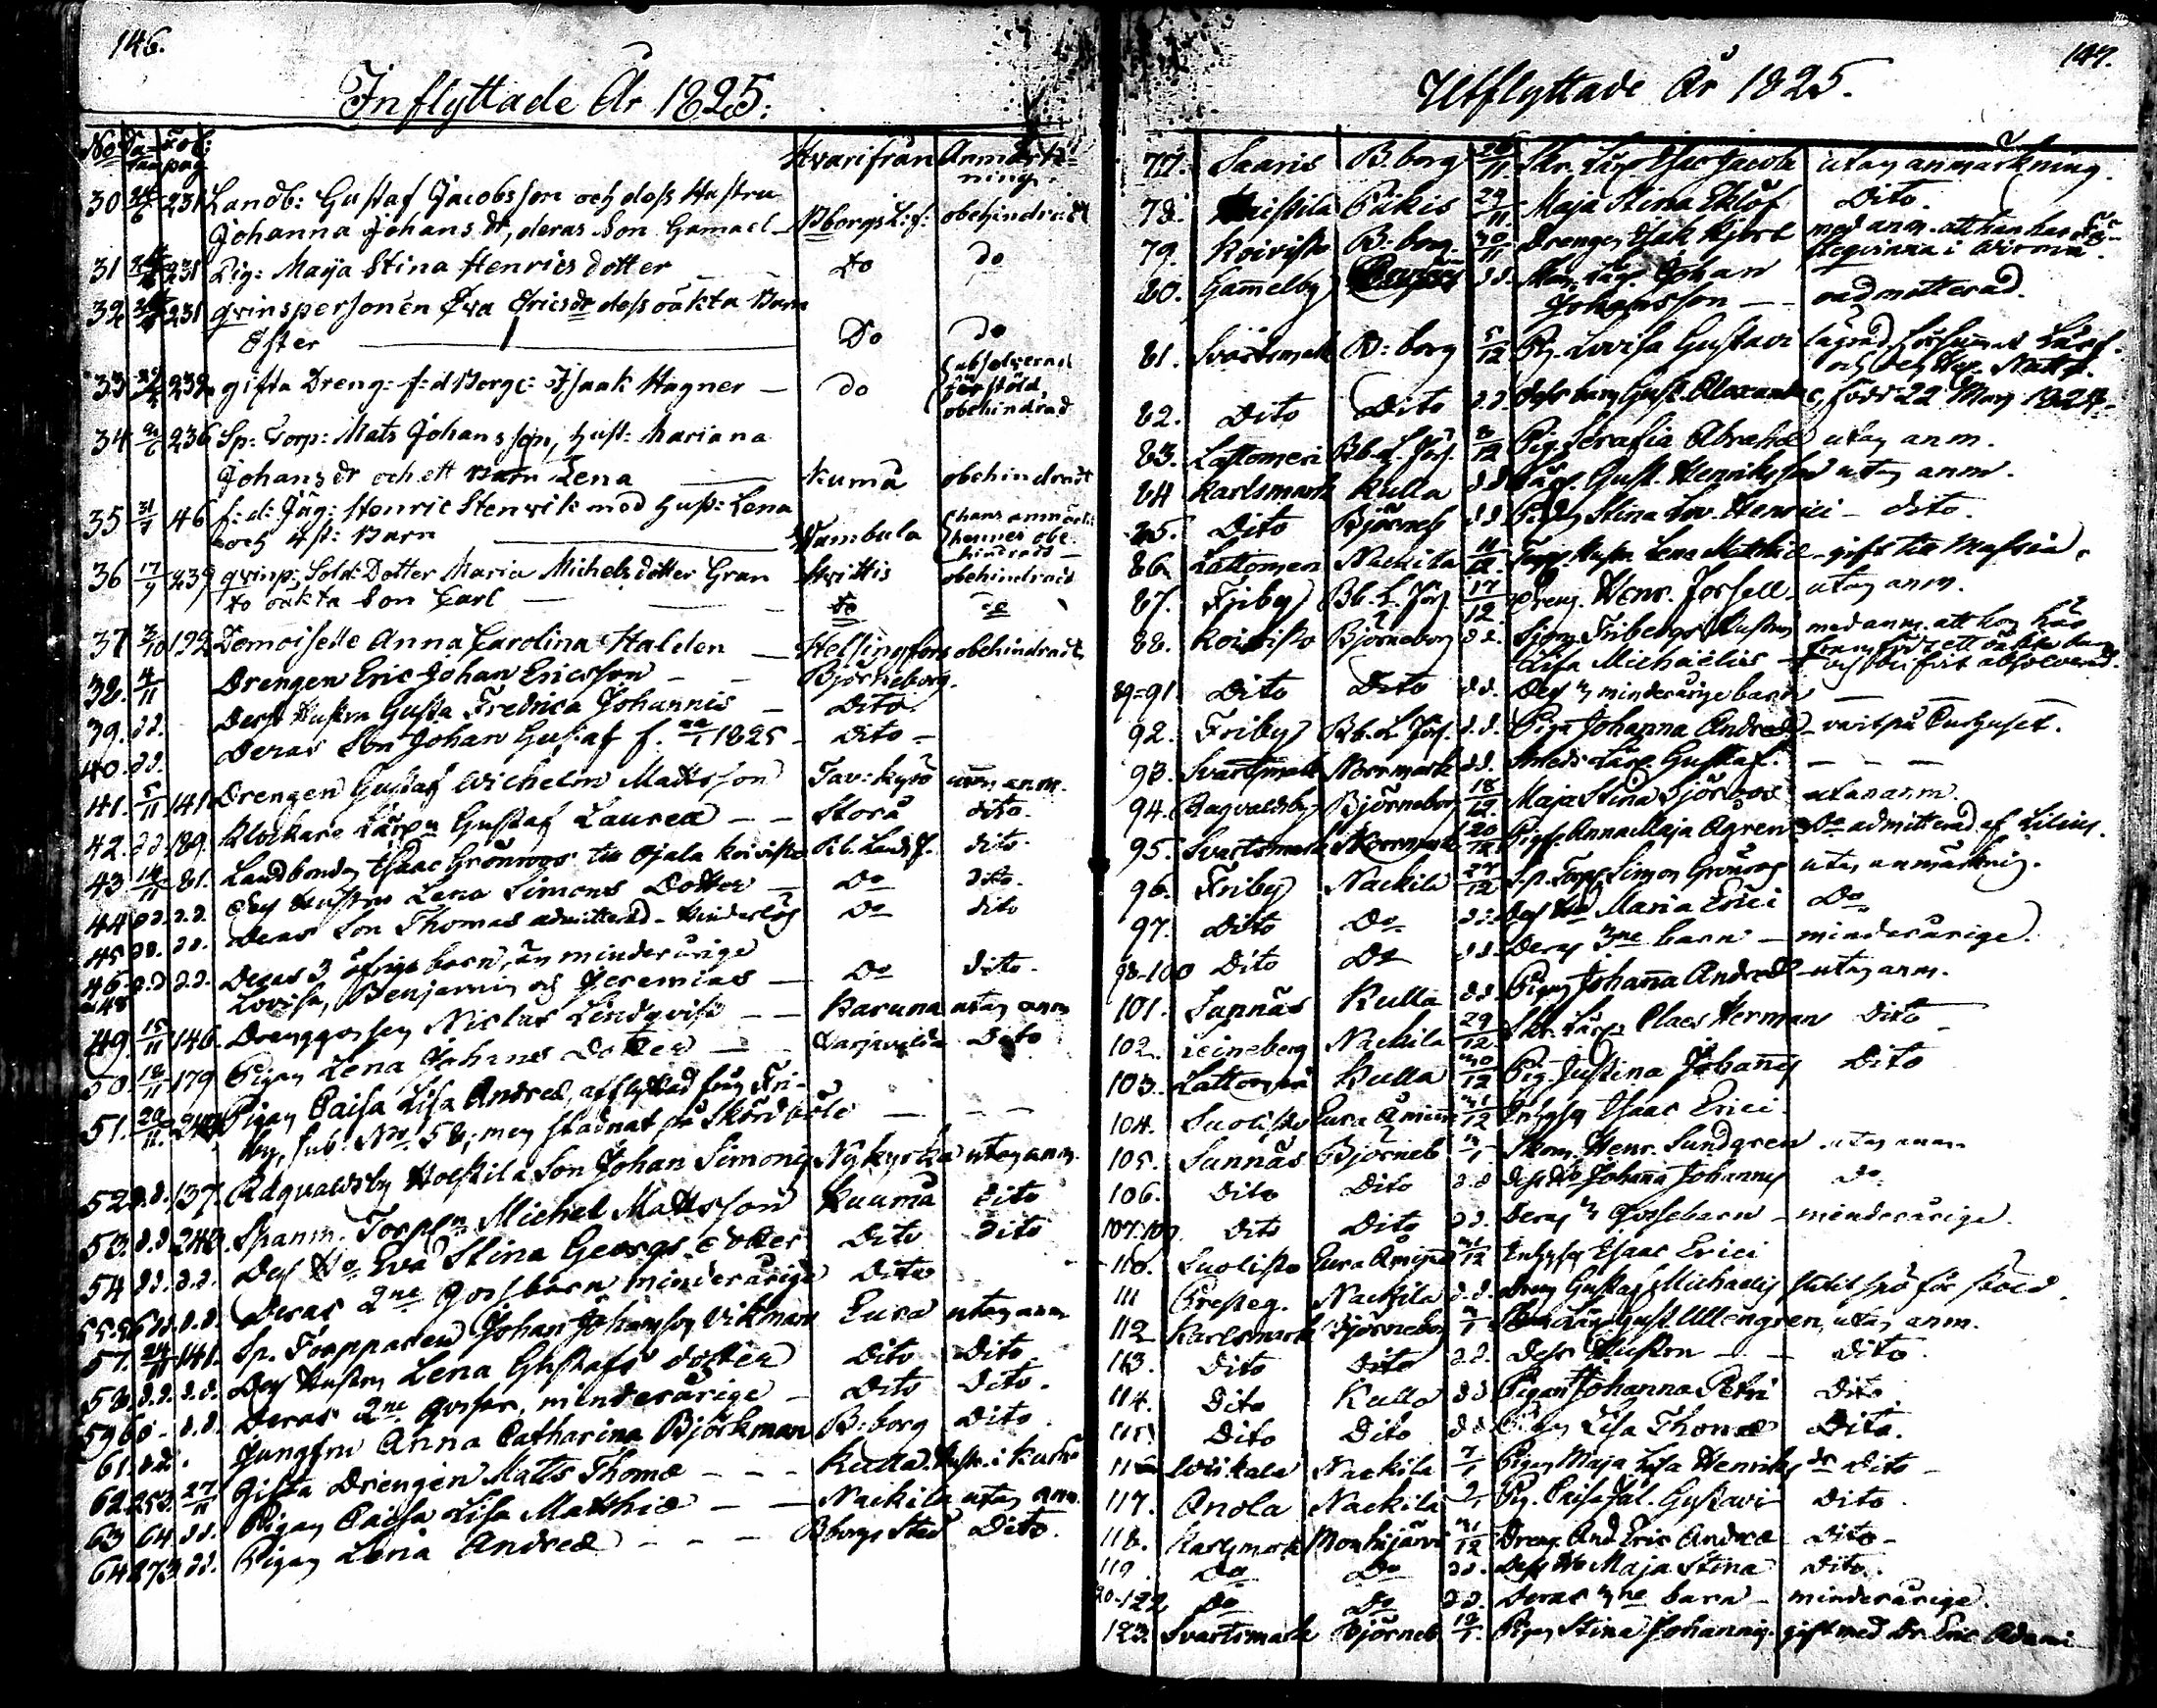 146.
Inflyttade År 1825.
No Datum Fol: pag Hvarifrån Anmärkning.
30 24/6 231 Landb: Gustaf Jacobsson och dess Hustru
Johanna Johansdr, deras Son Gamael B:borgs L:f: obehindradt
31 231 Pig: Maija Stina Henrics dotter Do Do
32 231 qvinspersonen Eva Ericsdr dess oäkta Barn
Ester Do Do
33 232 gifta Dreng: f:d Borge: Isaak Hagner Do absolverad för stöld obehindrad
34 236 Sp: Torp: Mats Johansson, Hust: Mariana
Johansdr och ett Barn Lena Kumå obehindradt
35 31/7 46 f:d: Jäg: Henric Stenvik med Hust: Lena
och 4 st: Barn hans anmärk: hennes obehindradt
36 17/9 239 qvinsp: Sold: Dotter Maria Michelsdotter Gran Hvittis obehindradt
to oäkta Son Carl do do
37 3/10 192 Demoiselle Anna Carolina Halden Helsingfors obehindradt
38. 4/11 Drengen Eric Johan Ericsson Björneborg.
39. dd. Dess Hustru Gusta Fredrica Johannis Dito
40. dd. Deras Son Johan Gustaf f. 1825 Dito
41. 5/11 141. Drengen Gustaf Wilhelm Mattsson Tav: kyrö utan anm.
42. dd. 189. Klockare Gustaf Laurea Storå dito.
43 18/11 81. Landbonden Isaac Grönroos Koivisto B.b. Lands f. dito.
44 dd. dd. Dess Hustru Lena Simons Dotter Do dito.
45 dd. dd. Deras Son Thomas admitterad Do dito
46-48 dd dd. Deras 3 öfriga barn, minderårige
Lovisa, Benjamin och Jeremias Do dito.
49. 15/11 146. Drenggossen Niclas Lindqvist Karuna utan anm
50. 18/11 179 Pigan Lena Johans Dotter Harjavalda Dito
51. 20/11. Pigan Caisa Lisa Andreæ, afflyttad från Fri-
by, sub. No 58, men stadnat på Skördböle
52 dd. 137. Ragvaldsby Son Johan Simonis Nykyrka utan anm.
53. dd. 243. Spanm. Torparen Michel Mattsson Kuumå dito
54 dd. dd. Dess Ho Eva Stina Georgs dotter Dito dito
55.56 dd. dd. Deras 2ne goss barn minderårige Dito
57. 24/11 141. Sp. Torpparen Johan Johansson Vikman Eura utan anm
58. dd. dd. Dess Hustru Lena Gustafs dotter Dito Dito.
59 60 - dd. Deras 2ne gossar, minderårige Dito Dito.
61. dd. Jungfru Anna Catharina Björkman B:borg Dito.
62 253. 27/11 Gifta Drengen Matts Thomæ Kulla.
63 64 dd. Pigan Caisa Lisa Matthiæ Nackila utan anm.
64 273 dd. Pigan Lena Andreæ Bborgs Stad Dito.
147.
Utflyttade År 1825.
77. Saaris B. borg Isac Jacobi utan anmärkning.
78. Pikis 29/11 Maja Stina Eklöf Dito.
79. Koivisto B: borg. 30/11 Drengen Isak Hjort med anm. att han har Fästeqvinna i Wirmo.
80. Gammelby dd. Johan
Johansson oadmitterad.
81. Svartsmark B: borg 5/12 Pig. Lovisa Gustavi
och Nattv.
82. Dito Dito dd. Dess barn Gust. Alexander, född 22 Maij 1824.
83. Lattomeri Bb. L. förs. 8/12 Pig. Serafia Abrahæ utan anm.
84 Karlsmark Kulla dd Gust. Henriksson utan anm.
85. Dito Björneb dd Pigan Stina Lov. Henrici dito.
86. Lattomeri Nackila 11/12. Hustr. Lena Matthiæ gift till
87. Friby Bb. L. förs. 17/12. Dreng. Henr. Forsell utan anm.
88. Koivisto Björneborg dd. Fribergs Hustru med anm. att hon har
Lisa Michaelis framfödt ett oäkta barn och blifvit absolverad.
89-91. Dito Dito dd. Dess 3 minderårige barn
92. Friby Bb. L. förs. dd. Piga Johanna Andreæ varit på Curhuset.
93. Svartsmark Norrmark dd. Gustaf.
94. Ragvaldsby Björneborg 18/12 Maja Stina Sjöroos utan anm.
95. Svartsmark Norrmark 20/12 Pigan Anna Maja Ågren Do admitterad af Lilius.
96. Friby Nackila 27/12 Sp. Torp. Simon Grönroos utan anmärkning.
97. Dito Do dd. Dess Ho Maria Erici Do
98-100 Dito Do dd. Deras 3ne barn minderårige.
101. Sannäs Kulla dd. Pigan Johana Andreæ utan anm.
102. Leineberg Nackila 29/12 Claes Herman Dito
103. Lattomeri Kulla 30/12 Pig. Justina Johannis Dito
104. Suolisto Eura Åminne 31/12 Inhyses Isaac Erici.
105. Sannäs Björneb 3/1 Skom. Henr. Sundgren utan anm.
106. Dito Dito dd Dess Ho Johana Johannis do.
107.109 Dito Dito dd. Deras 3 gossebarn minderårige.
110. Suolisto Eura Åminne 31/12 Inhyses Isaac Erici
111 Nackila dd. Dreng Gustaf Michaelis slitit spö för stöld.
112 Karlsmark Björneborg Gust Ullengren, utan anm.
113. Dito Dito dd. Dess Hustru dito.
114. Dito Kulla dd Pigan Johanna Petri Dito
115. Dito Dito dd Pigan Lisa Thomæ Dito.
116 Wiikala Nackila 7/1 Pigan Maja Lisa Henriks dr Dito
117. Anola Nackila Pig. Caisa Jul. Gustavi Dito.
118. Karlsmark Mouhijärvi 31/12 Dreng And Eric Andreæ Dito
119 Do Do dd. Dess Ho Maja Stina Dito.
20-122 Do Do dd. Deras 3ne barn minderårige.
123. Svartsmark Björneb Pigan Stina Johannis gift med Dr. Eric Adami